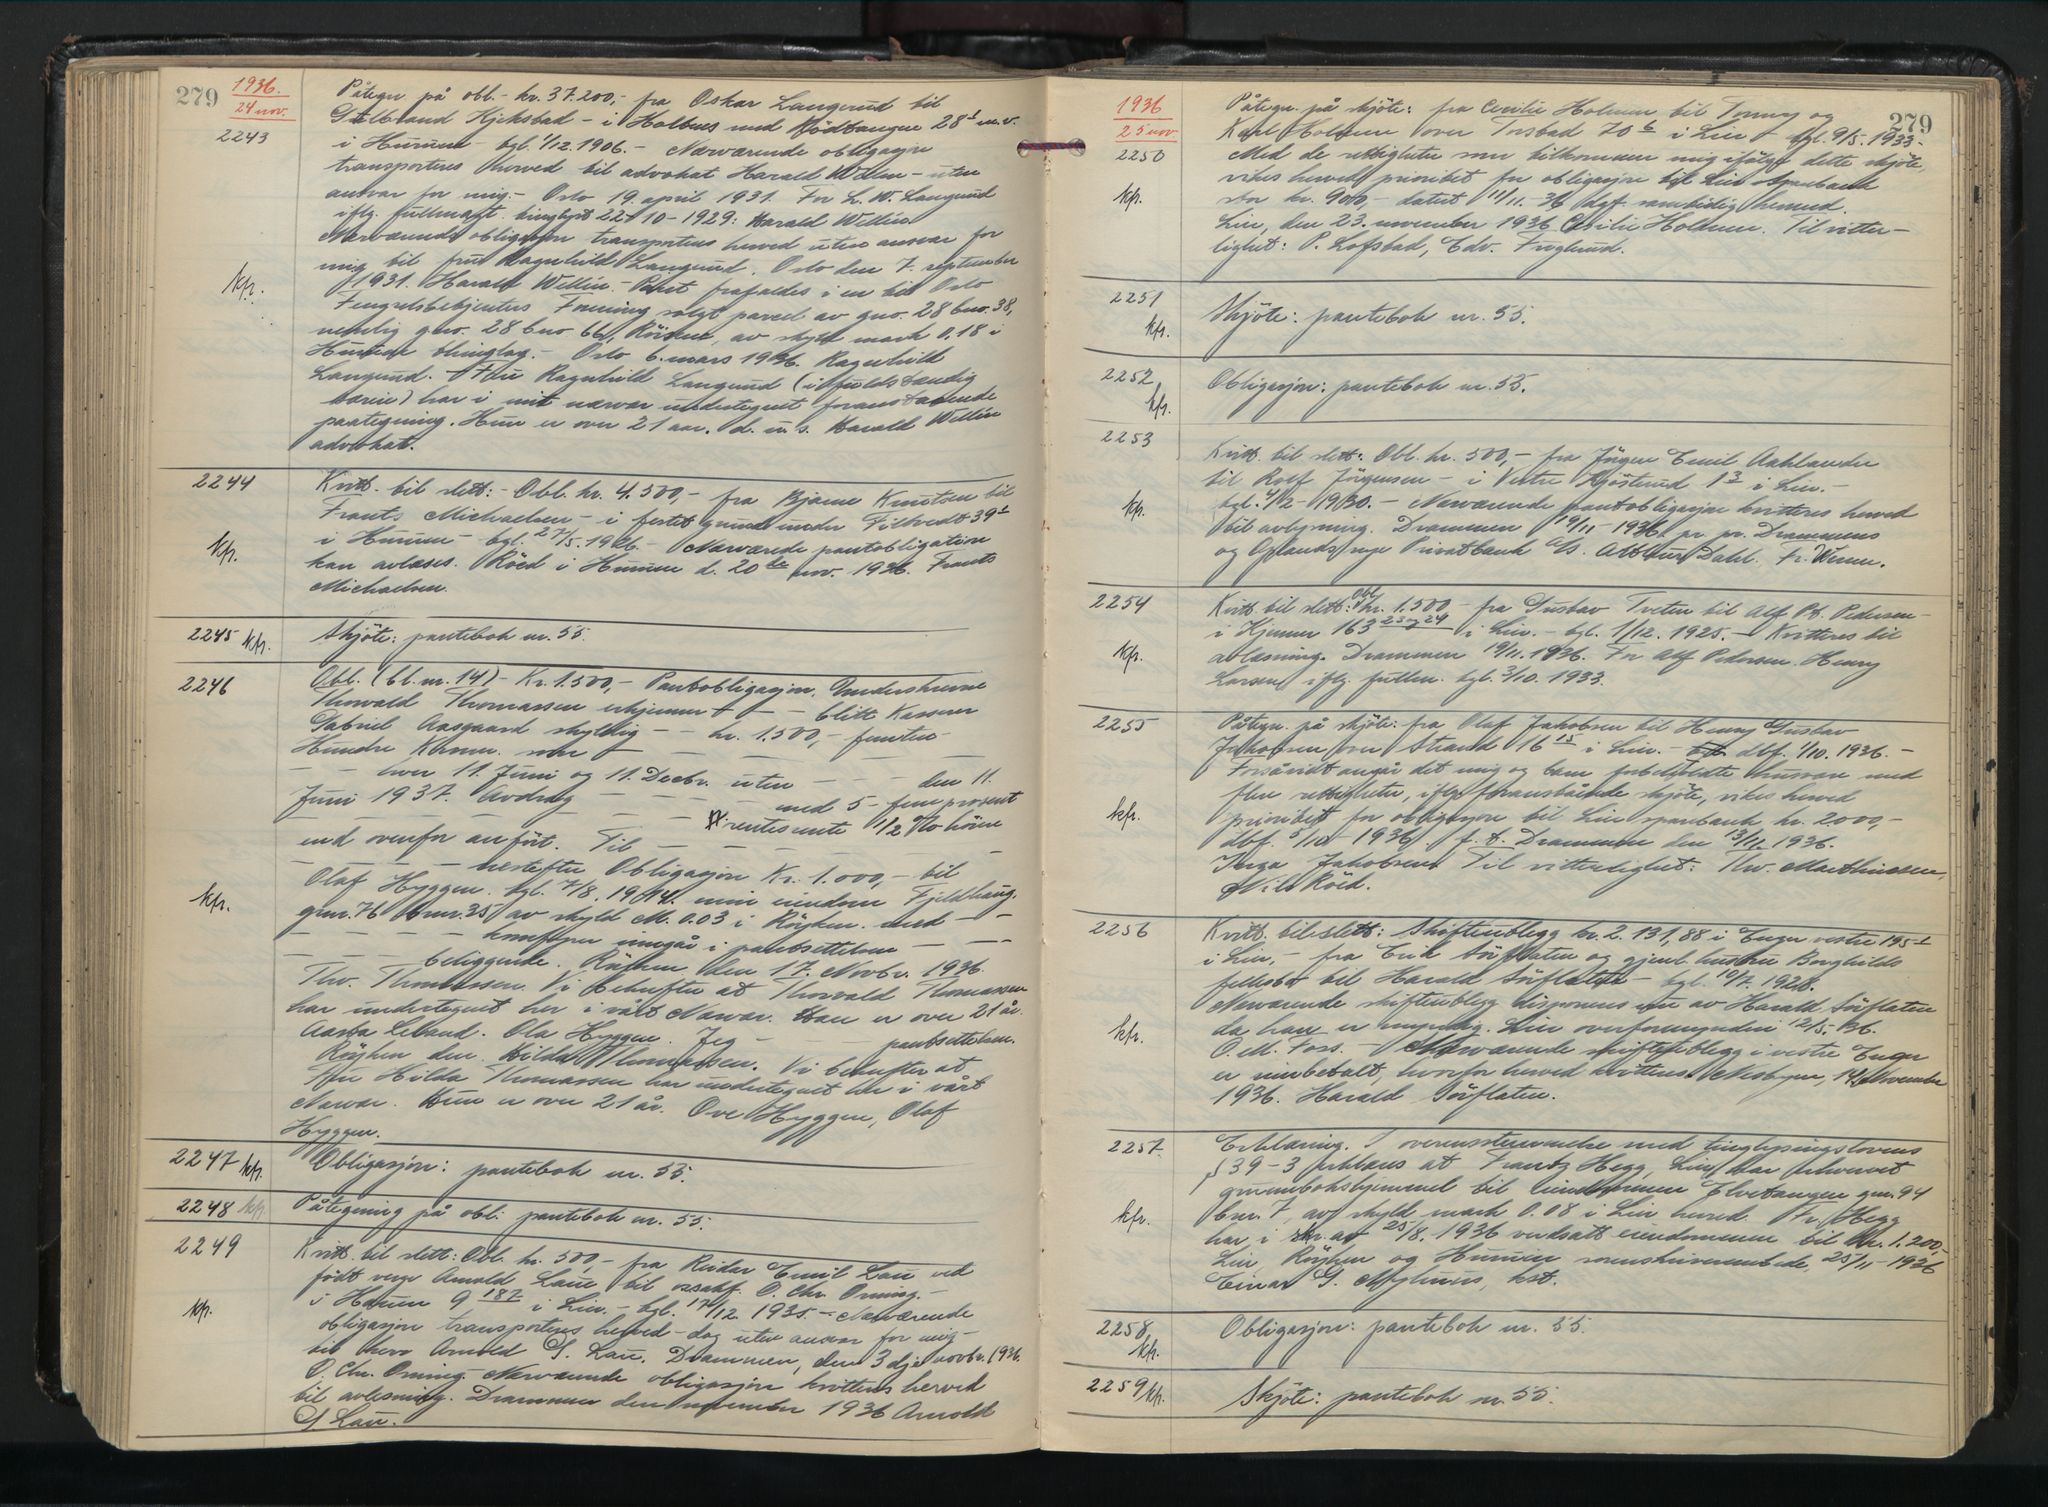 279
1936.
24 nov.
2243
Påtegn på obl. - kr. 37.200,- fra Oskar Langerud til
Gulbrand Kjeksbad - i Holtnes med Rödtangen 28 1 m.v.
i Hurum - tgl. 1/12. 1906. - Nærværende obligasjon
transporteres herved til advokat Harald Wellén - uten
ansvar for mig. - Oslo 19. april 1931. For L. W. Langerud
iflg. fullmagt tinglyst 22-10-1929: Harald Wellén
Nærværende obligasjon transporteres herved uten ansvar for
mig til fru Ragnhild Langerud. Oslo den 7. september
1931. Harald Wellén. - Pant frafaldes i en til Oslo
kfr.
Fengselsbetjenters Forening solgt parcel av gno. 28 bno. 38,
nemlig gno. 28 bno 66, av skyld mark 0,18 i
Hurum tinglag. - Oslo 6. mars 1936. Ragnhild
Langerud. Fru Ragnhild Langerud (i fuldstændig
særeie) har i mit nærvær undertegnet foranstaaende
paategning. Hun er over 21 aar. d. u. s. Harald Wellén
advokat.
2244
kfr.
Kvitt. til slett: - Obl. kr. 4.500,- fra Bjarne Knutsen til
Frants Michaelsen - i festet grund under Tilvedt 39 1
i Hurum - tgl. 27/5. 1926. - Nærværede pantobligation
kan avlæses. Röed i Hurum d. 20 de nov. 1936. Frants
Michaelsen.
2245 kfr.
Skjöte: pantebok nr. 55.
2246
kfr.
Obl. (bl. nr. 14) - Kr. 1.500,- Pantobligasjon. Underskrevne
Thorvald Thomassen erkjenner - - blitt Kasserer
Gabriel Aasgaard skyldig - - kr. 1.500,- femten
Hundre Kroner som - -
- - hver 11. Juni og 11. Decbr. uten - - - den 11.
Juni 1937. Avdrag - - - - med 5 - fem prosent
- - - - rentesrente 1/2 % höiere
end ovenfor anfört. Til - - - -
- - - - nestefter Obligasjon Kr. 1.000,- til
Olaf Hyggen. tgl. 7/8. 1914. min eiendom Fjeldhaug.
gnr. 76 bnr. 35 av skyld M. 0.03 i Röyken. med - -
- - - - hvorefter inngår i pantsettelsen - - -
- - - beliggende. Röyken den 17. Novbr. 1936.
Thv. Thomassen. Vi bekrefter at Thorvald Thomassen
har undertegnet her i vårt Nærvær. Han er over 21 år.
Aasta Leband. Ola Hyggen. Jeg - - - pantsettelsen.
Röyken den. Hilda Thomassen. Vi bekrefter at
Fru Hilda Thomassen har undertegnet her i vårt
Nærvær. Hun er over 21 år. Ove Hyggen, Olaf
Hyggen.
2247 kfr.
Obligasjon: pantebok nr. 55.
2248 kfr.
Påtegning på obl: pantebok nr. 55.
2249
kfr.
Kvitt. til slett: Obl. kr. 500,- fra Reidar Emil Lau ved
födt verge Arnold Lau til O. Chr. Orning. -
i 9 187 i Lier. - tgl. 17/12. 1935. - Nærværende
obligasjon transporteres herved - dog uten ansvar for mig -
til herr Arnold S. Lau. Drammen, den 3dje novbr. 1936.
O. Chr. Orning. Nærværende obligasjon kvitteres herved
til avlesning. Drammen den november 1936 Arnold
S. Lau.
279
1936
25 nov
2250
kfr.
Påtegn. på skjöte: fra Cecilie Holmen til Tommy og
Karl Holmen over Torsbad 70 6 i Lier - tgl. 9/5. 1933 -
Med de rettigheter som tilkommer mig ifölge dette skjöte,
vikes herved prioritet for obligasjon til Lier Sparebank
stor kr. 900,- datert 11/11. 36 dgf. samtidig hermed.
Lier, den 23. november 1936 Cecilie Holmen. Til vitter-
lighet: P. Lofsbad, Edv. Froglund.
2251
kfr.
Skjöte: pantebok nr. 55.
2252
kfr.
Obligasjon: pantebok nr. 55.
2253
kfr.
Kvitt. til slett: Obl. kr. 500,- fra Jörgen Emil Aahlander
til Rolf Jörgensen - i Vestre 1 3 i Lier. -
tgl. 4/2 - 1930. - Nærværende pantobligasjon kvitteres herved
til avlysning. Drammen 19/11 - 1936 pr. pr. Drammens
og Oplands nye Privatbank A/S. Arthur Dahl. Fr. Werner.
2254
kfr.
Kvitt. til slett: Obl. kr. 1.500,- fra Gustav Tveten til Alf Pedersen -
i Kjenner 163 23 og 24 i Lier. - tgl. 1/12. 1925. - Kvitteres til
avlæsning. Drammen 19/11. 1936. For Alf Pedersen. Henry
Larsen, iflg. fullm. tgl. 3/10. 1933.
2255
kfr.
Påtegn. på skjöte: fra Olaf Jakobsen til Henry Gustav
Jakobsen over Strand 16 15 i Lier. - dbf. 1/10. 1936. -
Forsåvidt angår det mig og barn forbeholdte husvære med
flere rettigheter, iflg. foranstående skjöte, vikes herved
prioritet for obligasjon til Lier sparebank kr. 2000,-
dbf. 5/10 - 1936. f. t. Drammen den 13/11. 1936.
Inga Jakobsen. Til vitterlighet: Thv. Marthinsen,
Nils Röed.
2256
kfr.
Kvitt. til slett: Skifteutlegg kr. 2.131,88 i Enger vestre 195 1
i Lier, - fra Erik Sörflaten og gjenl. hustru Borghilds
fellesbo til Harald Sörflaten - tgl. 10/7. 1928.
Nærværende skifteutlegg disponeres nu av Harald Sörflaten
da han er myndig. Lier overformynderi 12/5. 36.
O. M. Foss. - Nærværende skifteutlegg i vestre Enger
er innbetalt, hvorfor herved kvitteres. Nesbyen, 14. November
1936. Harald Sörflaten.
2257.
kfr.
Erklæring. I overensstemmelse med tinglysingslovens
§ 39-3 erklæres at Frantz Hegg, Lier har erhvervet
grunnbokshjemmel til eiendommen Elvetangen gnr. 94
bnr. 7, av skyld mark 0.08 i Lier herred. Fr. Hegg
har i skr. av 25/8. 1936 verdsatt eiendommen til kr. 1.200,-
Lier, Röyken og Hurum sorenskriverembede, 25/11 - 1936
Einar G. Myhrens, kst.
2258
kfr.
Obligasjon: pantebok nr. 55.
2259 kfr.
Skjöte: pantebok nr. 55.